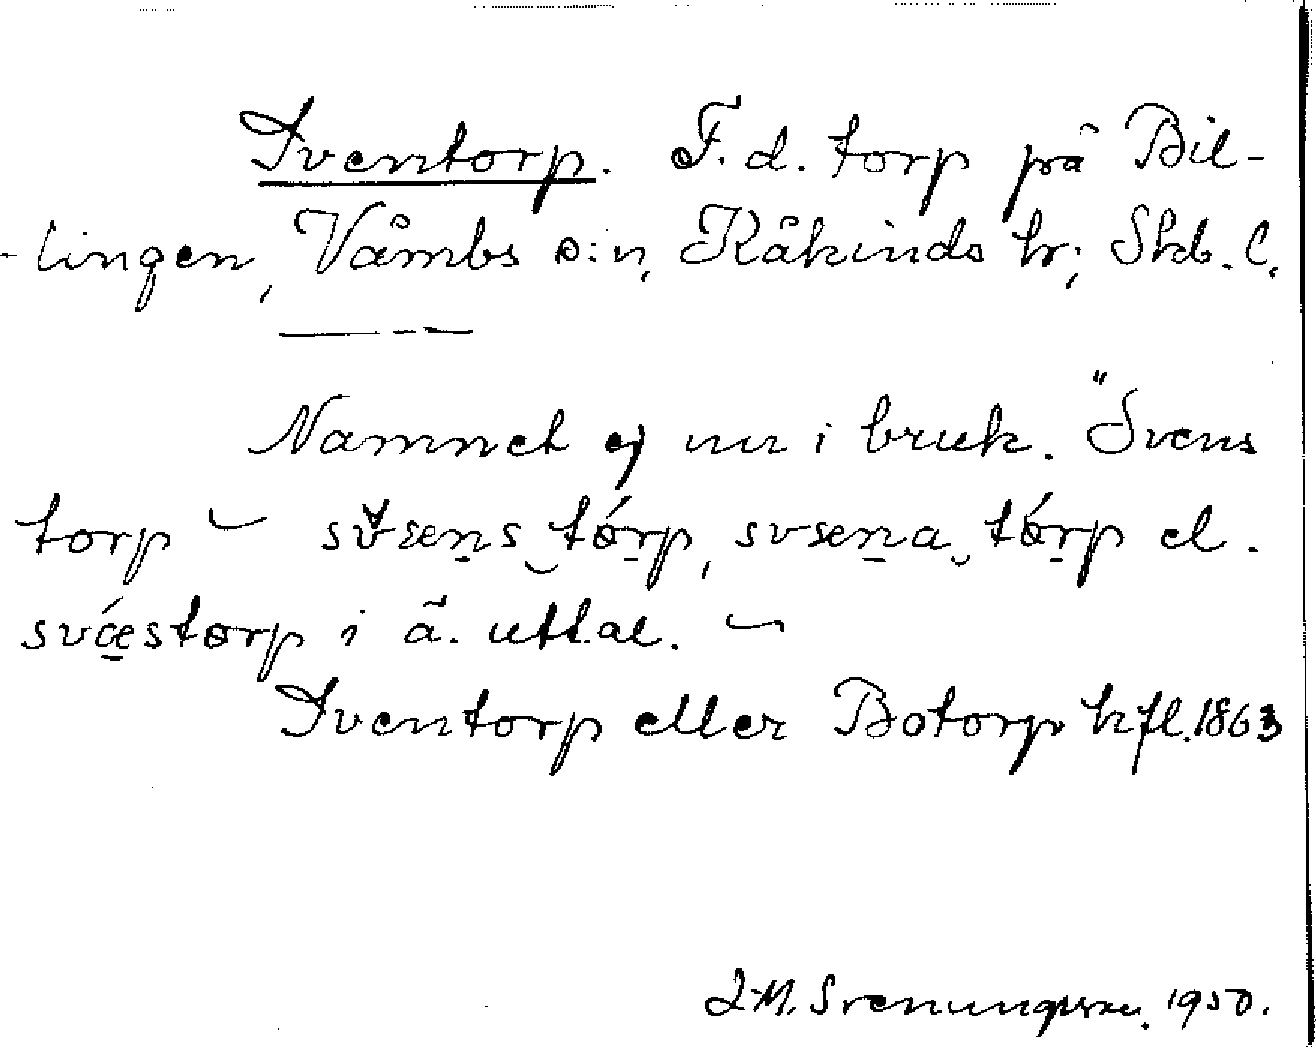 Sventorp. F.d. torp på Bil-
-lingen, Våmbs s:n, Kåkinds hr; Skb. l.
Namnet ej nu i bruk. "Svens
torp – svæns torp, svæna torp el.
svæstorp i ä. uttal. –
Sventorp eller Botorp hfl. 1863
J.M. Svenungsson. 1950.